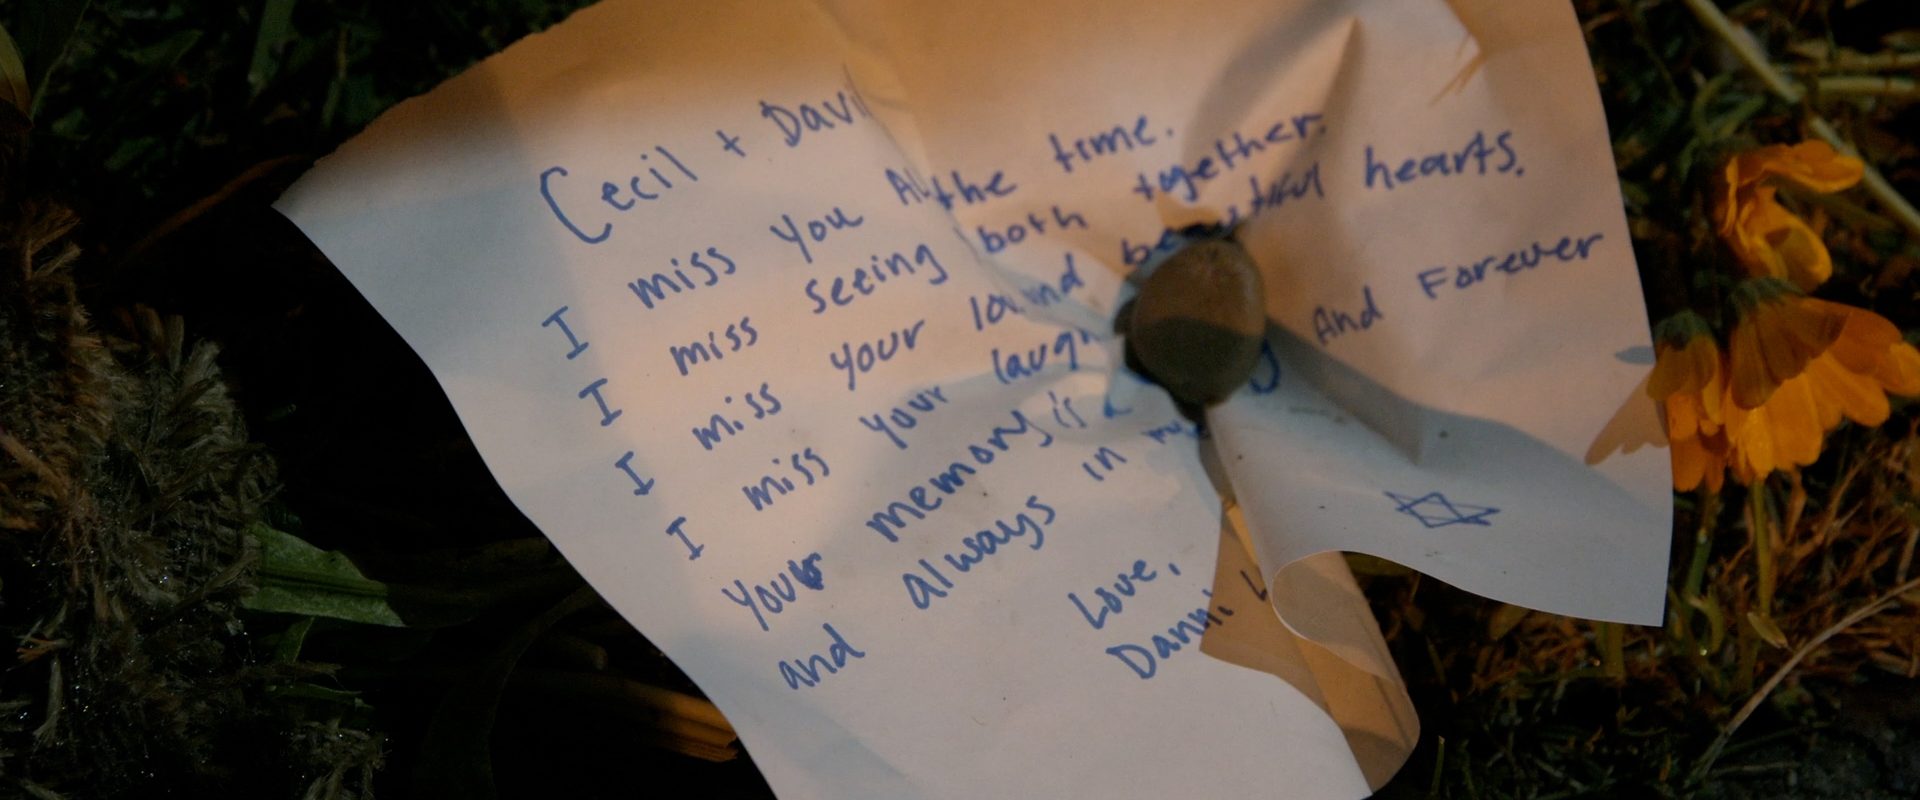 Cecil + Davi
I miss you All the time.
I miss seeing both together.
I miss your beautiful hearts.
I miss your
Your memory is And Forever
and always in my
Love,
Danni